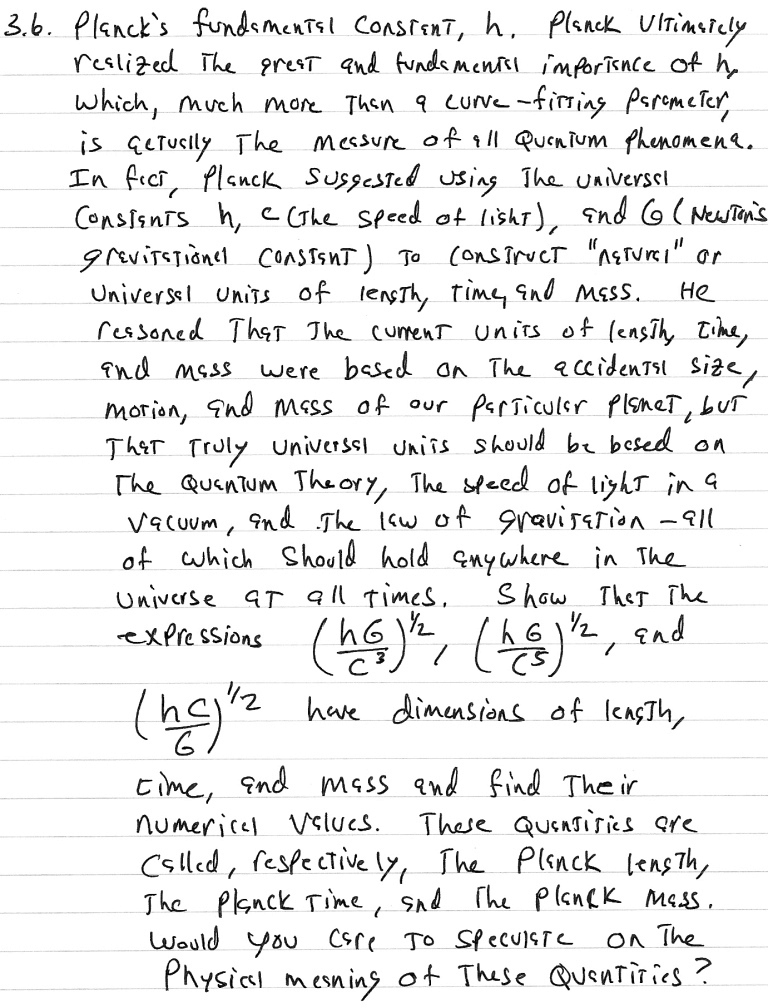 3.6. Planck's fundamental constant, h. Planck ultimately
realized the great and fundamental importance of h,
which, much more than a curve-fitting parameter,
is actually the measure of all quantum phenomena.
In fact, Planck suggested using the universal
constants h, c (the speed of light), and G (Newton's
gravitational constant) to construct "natural" or
universal units of length, time, and mass. He
reasoned that the current units of length, time,
and mass were based on the accidental size,
motion, and mass of our particular planet, but
that truly universal units should be based on
the quantum theory, the speed of light in a
vacuum, and the law of gravitation – all
of which should hold anywhere in the
universe at all times. Show that the
expressions (hG/c³)^1/2, (hG/c⁵)^1/2, and
(hc/G)^1/2 have dimensions of length,
time, and mass and find their
numerical values. These quantities are
called, respectively, the Planck length,
the Planck time, and the Planck mass.
Would you care to speculate on the
physical meaning of these quantities?